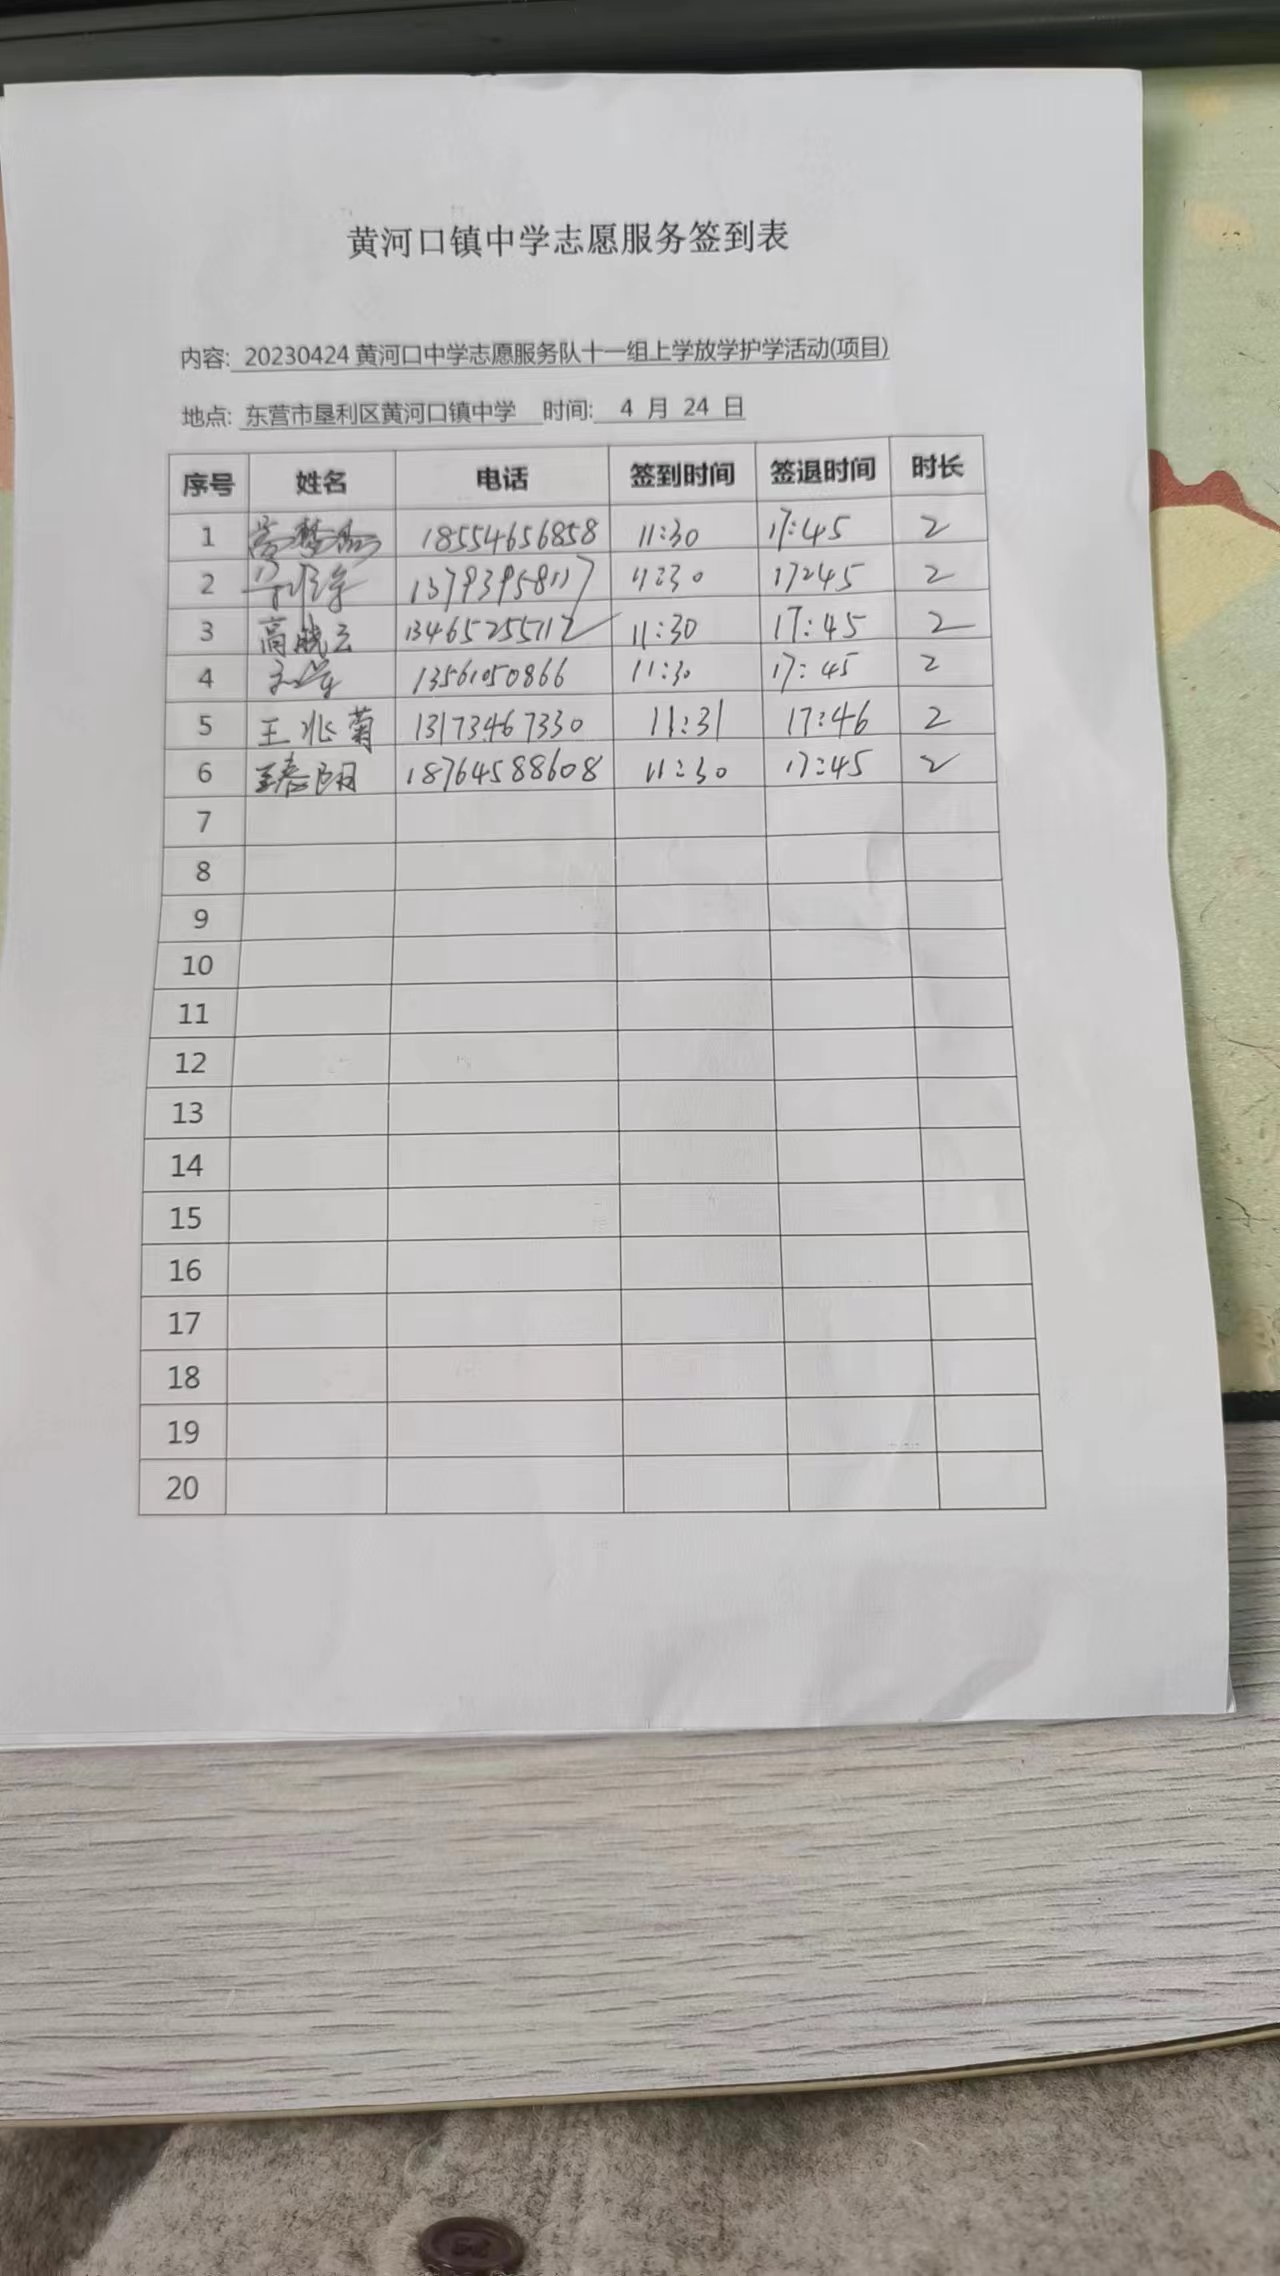 黄河口镇中学志愿服务签到表
内容: 20230424 黄河口中学志愿服务队十一组上学放学护学活动(项目)
地点: 东营市垦利区黄河口镇中学 时间: 4 月 24 日
序号 姓名 电话 签到时间 签退时间 时长
1 18554656858 11:30 17:45 2
2 11:30 17:45 2
3 高晓云 13465255712 11:30 17:45 2
4 13561050866 11:30 17:45 2
5 王兆菊 13173467330 11:31 17:46 2
6 18764588608 11:30 17:45 2
7
8
9
10
11
12
13
14
15
16
17
18
19
20